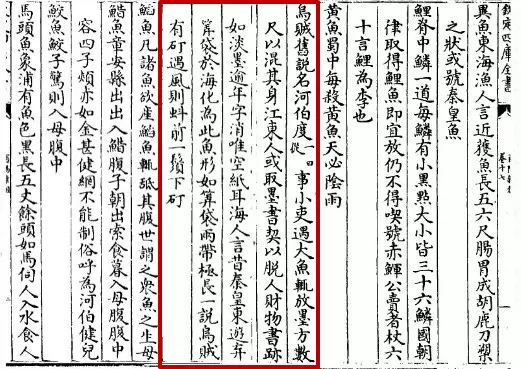 欽定四庫全書
異魚東海漁人言近獲魚長五六尺腸胃成胡鹿刀槊
之狀或號秦皇魚
鯉脊中鱗一道每鱗有小黑點大小皆三十六鱗國朝
律取得鯉魚即宜放仍不得喫號赤鯶公賣者杖六
十言鯉為李也
黃魚蜀中每殺黃魚天必陰雨
烏賊舊說名河伯度一曰從事小吏遇大魚輒放墨方數
尺以混其身江東人或取墨書契以脫人財物書跡
如淡墨逾年字消唯空紙耳海人言昔秦皇東遊弃
筭袋於海化為此魚形如筭袋兩帶極長一說烏賊
有矴遇風則蚪前一鬚下矴
鮐魚凡諸魚欲產鮐魚輒舐其腹世謂之衆魚之生母
䱜魚章安縣出出入䱜腹子朝出索食暮入母腹腹中
容四子頰赤如金甚健網不能制俗呼為河伯健兒
鮫魚鮫子驚則入母腹中
馬頭魚象浦有魚色黑長五丈餘頭如馬伺人入水食人